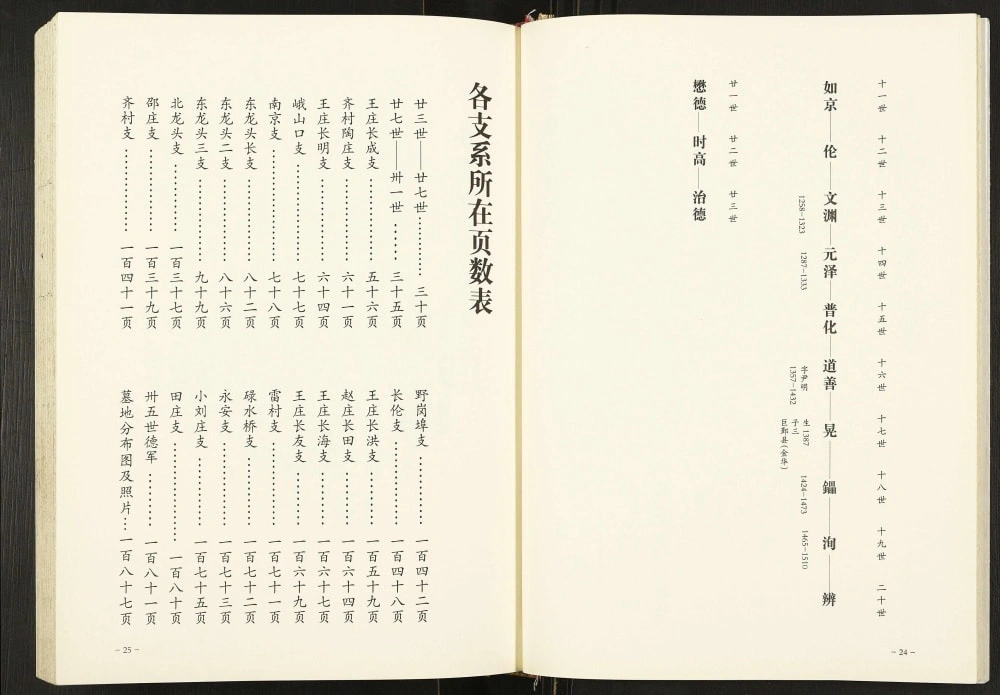 十一世 十二世 十三世 十四世 十五世 十六世 十七世 十八世 十九世 二十世
如京——伦——文渊——元泽——普化——道善——晃——鑘——洵——辨
1258-1323
1287-1333
字尹明
1357-1432
生1387
子三
巨鄞县(金华)
1424-1473
1465-1510
廿一世 廿二世 廿三世
懋德——时高——治德
- 24 -
各支系所在页数表
廿三世——廿七世………… 三十页
廿七世——卅一世 …… 三十五页
王庄长成支 ………… 五十六页
齐村陶庄支 ………… 六十一页
王庄长明支 ………… 六十四页
峨山口支 ………… 七十七页
南京支 ………… 七十八页
东龙头长支 ………… 八十二页
东龙头二支 ………… 八十六页
东龙头三支 ………… 九十九页
北龙头支 ………… 一百三十七页
邵庄支 ………… 一百三十九页
齐村支 ………… 一百四十一页
野岗埠支 ………… 一百四十二页
长伦支 ………… 一百四十八页
王庄长洪支 ………… 一百五十九页
赵庄长田支 ………… 一百六十四页
王庄长海支 ………… 一百六十七页
王庄长友支 ………… 一百六十九页
雷村支 ………… 一百七十一页
碌水桥支 ………… 一百七十二页
永安支 ………… 一百七十三页
小刘庄支 ………… 一百七十五页
田庄支 ………… 一百八十页
卅五世德军 ………… 一百八十一页
墓地分布图及照片… 一百八十七页
- 25 -